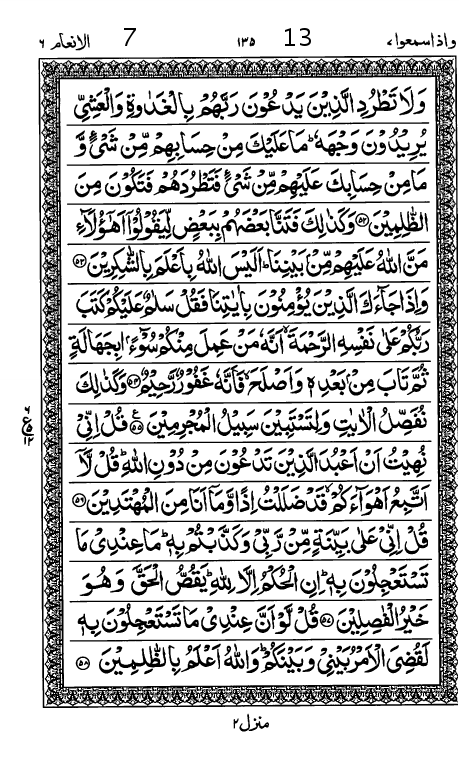 واذاسمعوا۷ ١٣٥ 13 7 الانعام ٦
وَلَا تَطْرُدِ الَّذِيْنَ يَدْعُوْنَ رَبَّهُمْ بِالْغَدٰوةِ وَالْعَشِيِّ
يُرِيْدُوْنَ وَجْهَهٗ ؕ مَا عَلَيْكَ مِنْ حِسَابِهِمْ مِّنْ شَيْءٍ وَّ
مَا مِنْ حِسَابِكَ عَلَيْهِمْ مِّنْ شَيْءٍ فَتَطْرُدَهُمْ فَتَكُوْنَ مِنَ
الظّٰلِمِيْنَ ﴿۵۲﴾ وَكَذٰلِكَ فَتَنَّا بَعْضَهُمْ بِبَعْضٍ لِّيَقُوْلُوْۤا اَهٰۤؤُلَآءِ
مَنَّ اللّٰهُ عَلَيْهِمْ مِّنْۢ بَيْنِنَا ؕ اَلَيْسَ اللّٰهُ بِاَعْلَمَ بِالشّٰكِرِيْنَ ﴿۵۳﴾
وَاِذَا جَآءَكَ الَّذِيْنَ يُؤْمِنُوْنَ بِاٰيٰتِنَا فَقُلْ سَلٰمٌ عَلَيْكُمْ كَتَبَ
رَبُّكُمْ عَلٰى نَفْسِهِ الرَّحْمَةَ ۙ اَنَّهٗ مَنْ عَمِلَ مِنْكُمْ سُوْٓءًۢا بِجَهَالَةٍ
ثُمَّ تَابَ مِنْۢ بَعْدِهٖ وَاَصْلَحَ ۙ فَاَنَّهٗ غَفُوْرٌ رَّحِيْمٌ ﴿۵۴﴾ وَكَذٰلِكَ
نُفَصِّلُ الْاٰيٰتِ وَلِتَسْتَبِيْنَ سَبِيْلُ الْمُجْرِمِيْنَ ﴿۵۵﴾ ع قُلْ اِنِّيْ
نُهِيْتُ اَنْ اَعْبُدَ الَّذِيْنَ تَدْعُوْنَ مِنْ دُوْنِ اللّٰهِ ؕ قُلْ لَّاۤ
اَتَّبِعُ اَهْوَآءَكُمْ ۙ قَدْ ضَلَلْتُ اِذًا وَّمَاۤ اَنَا مِنَ الْمُهْتَدِيْنَ ﴿۵۶﴾
قُلْ اِنِّيْ عَلٰى بَيِّنَةٍ مِّنْ رَّبِّيْ وَكَذَّبْتُمْ بِهٖ ؕ مَا عِنْدِيْ مَا
تَسْتَعْجِلُوْنَ بِهٖ ؕ اِنِ الْحُكْمُ اِلَّا لِلّٰهِ ؕ يَقُصُّ الْحَقَّ وَهُوَ
خَيْرُ الْفٰصِلِيْنَ ﴿۵۷﴾ قُلْ لَّوْ اَنَّ عِنْدِيْ مَا تَسْتَعْجِلُوْنَ بِهٖ
لَقُضِيَ الْاَمْرُ بَيْنِيْ وَبَيْنَكُمْ ؕ وَاللّٰهُ اَعْلَمُ بِالظّٰلِمِيْنَ ﴿۵۸﴾
منزل ۲